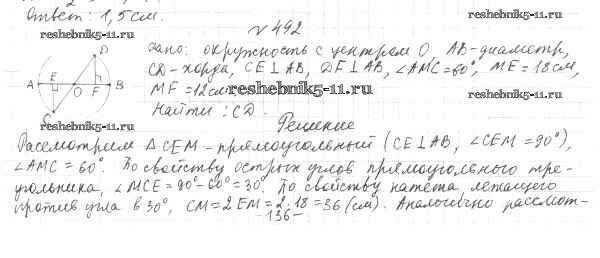 Ответ: 1,5 см.
№ 492
reshebnik5-11.ru
Дано: окружность с центром О, АВ-диаметр,
CD-хорда, CE⊥AB, DF⊥AB, ∠AMC=60°, ME=18см,
MF=12см reshebnik5-11.ru
Найти: CD.
D
A E O F B
C
reshebnik5-11.ru
Решение
Рассмотрим △CEM-прямоугольный (CE⊥AB, ∠CEM=90°),
∠AMC=60°. По свойству острых углов прямоугольного тре-
угольника, ∠MCE=90°-60°=30°. По свойству катета, лежащего
против угла в 30°, CM=2EM=2·18=36 (см). Аналогично рассмот-
-136-